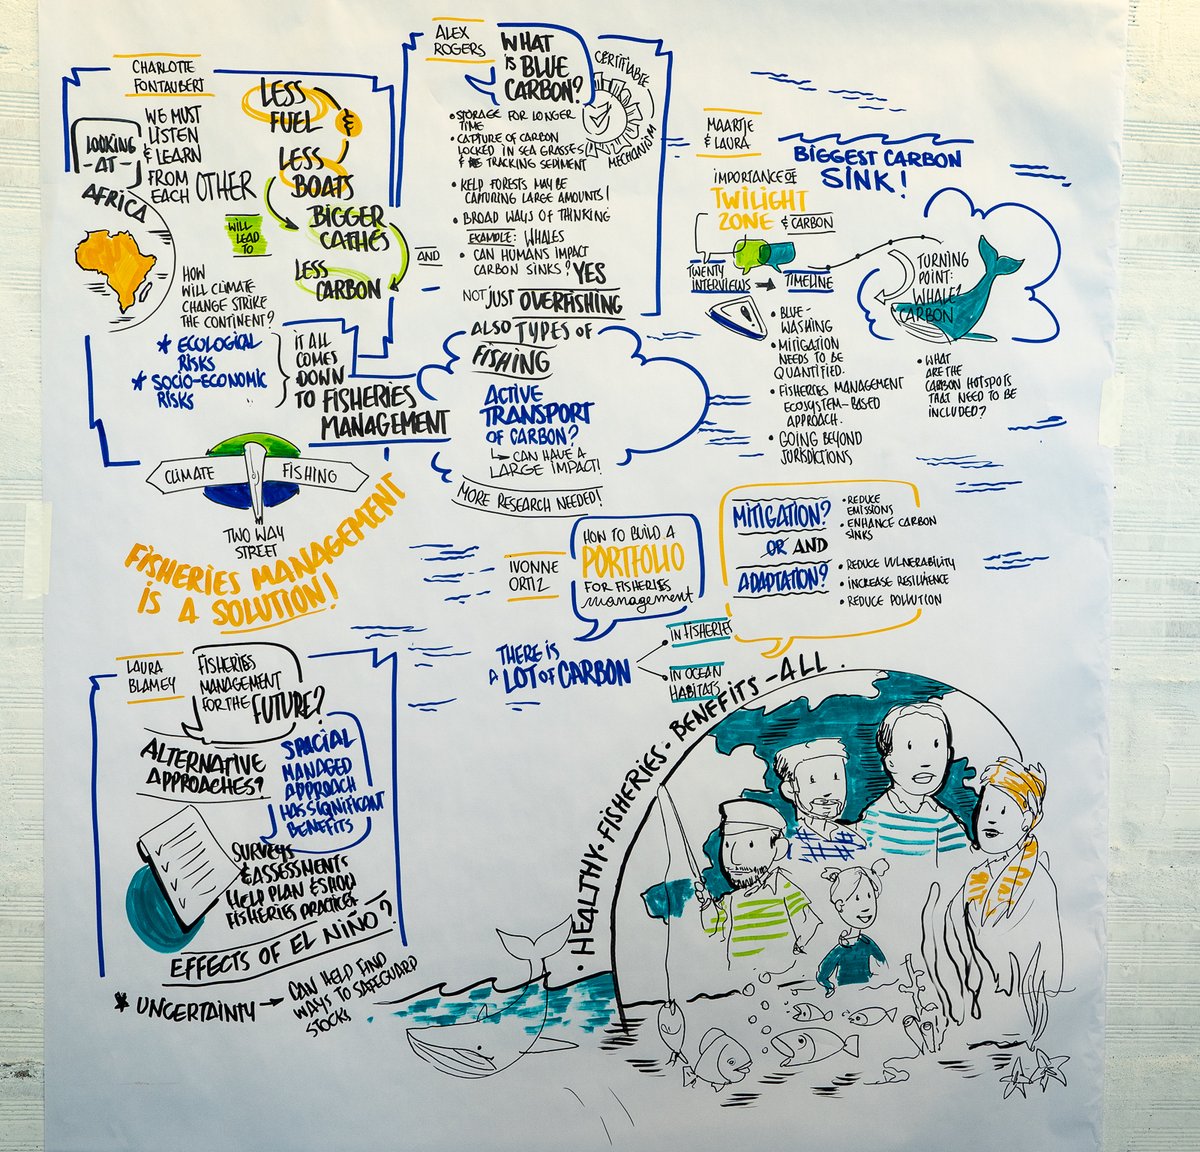 CHARLOTTE
FONTAUBERT
WE MUST
LISTEN
& LEARN
FROM
EACH OTHER
LOOKING
-AT-
AFRICA
LESS
FUEL
&
LESS
BOATS
WILL
LEAD
TO
BIGGER
CATHES
LESS
CARBON
AND
HOW
WILL CLIMATE
CHANGE STRIKE
THE CONTINENT?
* ECOLOGICAL
RISKS
* SOCIO-ECONOMIC
RISKS
IT ALL
COMES
DOWN
TO FISHERIES
MANAGEMENT
CLIMATE
FISHING
TWO WAY
STREET
FISHERIES MANAGEMENT
IS A SOLUTION!
ALEX
ROGERS
WHAT
IS BLUE
CARBON?
CERTIFIABLE
MECHANISM
• STORAGE FOR LONGER
TIME
• CAPTURE OF CARBON
LOCKED IN SEA GRASSES
& TRACKING SEDIMENT
• KELP FORESTS MAY BE
CAPTURING LARGE AMOUNTS!
• BROAD WAYS OF THINKING
EXAMPLE: WHALES
• CAN HUMANS IMPACT
CARBON SINKS? YES
NOT JUST OVERFISHING
ALSO TYPES OF
FISHING
ACTIVE
TRANSPORT
OF CARBON?
↳ CAN HAVE A
LARGE IMPACT!
MORE RESEARCH NEEDED!
MAARTJE
& LAURA
BIGGEST CARBON
SINK!
IMPORTANCE OF
TWILIGHT
ZONE & CARBON
TWENTY
INTERVIEWS → TIMELINE
TURNING
POINT:
WHALE?
CARBON
!
• BLUE-
WASHING
• MITIGATION
NEEDS TO BE
QUANTIFIED.
• FISHERIES MANAGEMENT
ECOSYSTEM-BASED
APPROACH.
• GOING BEYOND
JURSDICTIONS
• WHAT
ARE THE
CARBON HOTSPOTS
THAT NEED TO BE
INCLUDED?
IVONNE
ORTIZ
HOW TO BUILD A
PORTFOLIO
FOR FISHERIES
management
MITIGATION?
OR AND
ADAPTATION?
• REDUCE
EMISSIONS
• ENHANCE CARBON
SINKS
• REDUCE VULNERABILITY
• INCREASE RESILIENCE
• REDUCE POLLUTION
THERE IS
A LOT OF CARBON
• IN FISHERIES
• IN OCEAN
HABITATS
LAURA
BLAMEY
FISHERIES
MANAGEMENT
FOR THE FUTURE?
ALTERNATIVE
APPROACHES?
SPACIAL
MANAGED
APPROACH
HAS SIGNIFICANT
BENEFITS
SURVEYS
& ASSESSMENTS
HELP PLAN & SHOW
FISHERIES PRACTICES
EFFECTS OF EL NIÑO?
* UNCERTAINTY →
CAN HELP FIND
WAYS TO SAFEGUARD
STOCKS
• HEALTHY • FISHERIES • BENEFITS - ALL.